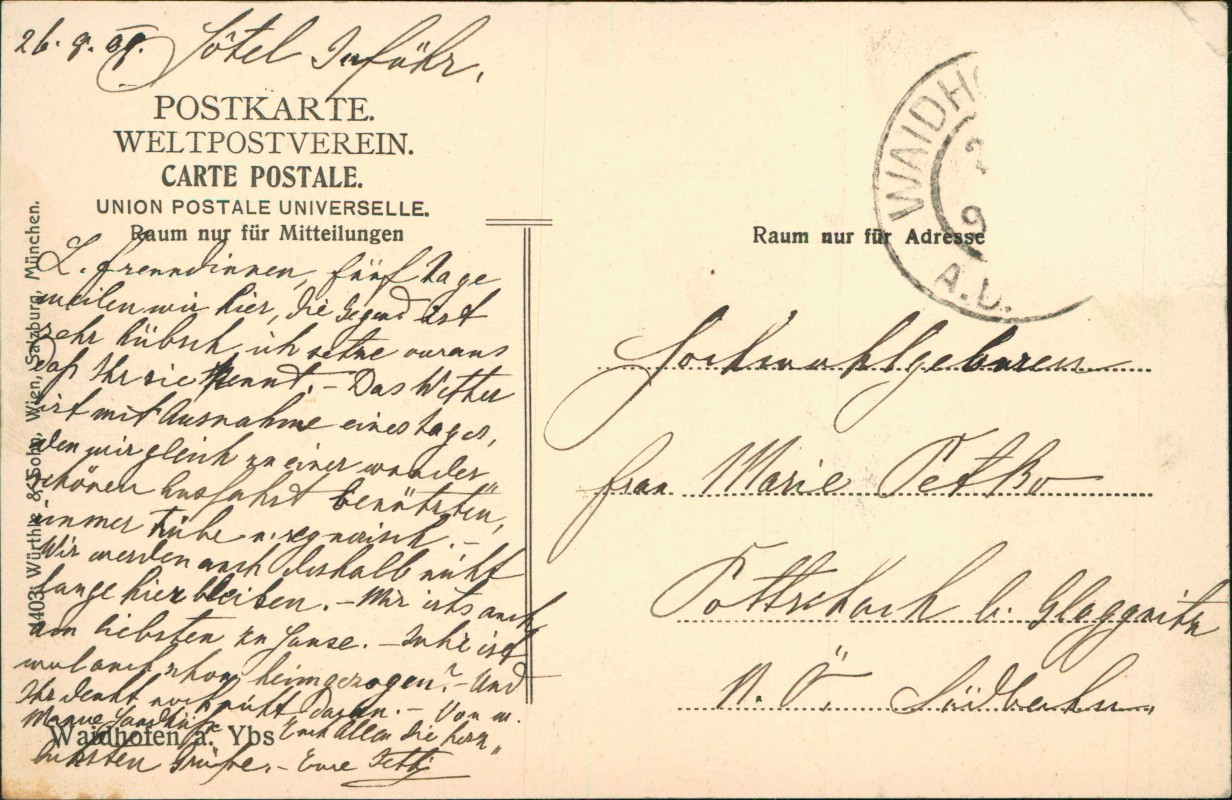 26. 9. 08. Hôtel Inführ,
POSTKARTE.
WELTPOSTVEREIN.
CARTE POSTALE.
UNION POSTALE UNIVERSELLE.
Raum nur für Mitteilungen
L. Freundinnen, fünf Tage
weilen wir hier, die Gegend ist
sehr hübsch, ich setze voraus
daß Ihr sie kennt. - Das Wetter
ist mit Ausnahme eines Tages,
den wir gleich zu einer wunder„
schönen Ausfahrt benützten,
immer trübe u. regnerisch. -
Wir werden auch deshalb nicht
lange hier bleiben. - Mir ists auch
am liebsten zu Hause. - Ist
wol auch schon heimgezogen? - Und
Ihr denkt noch nicht daran. - Von m.
Manne Handküße Euch allen die herz„
lichsten Grüße. - Eure Tetti
Waidhofen a. Ybs
4403 Würthle & Sohn, Wien, Salzburg, München.
WAIDHO
2
9
A.D.
Raum nur für Adresse
Hochwohlgeboren
Frau Marie Petko
Pottschach b. Gloggnitz
N. Ö. Südbahn.